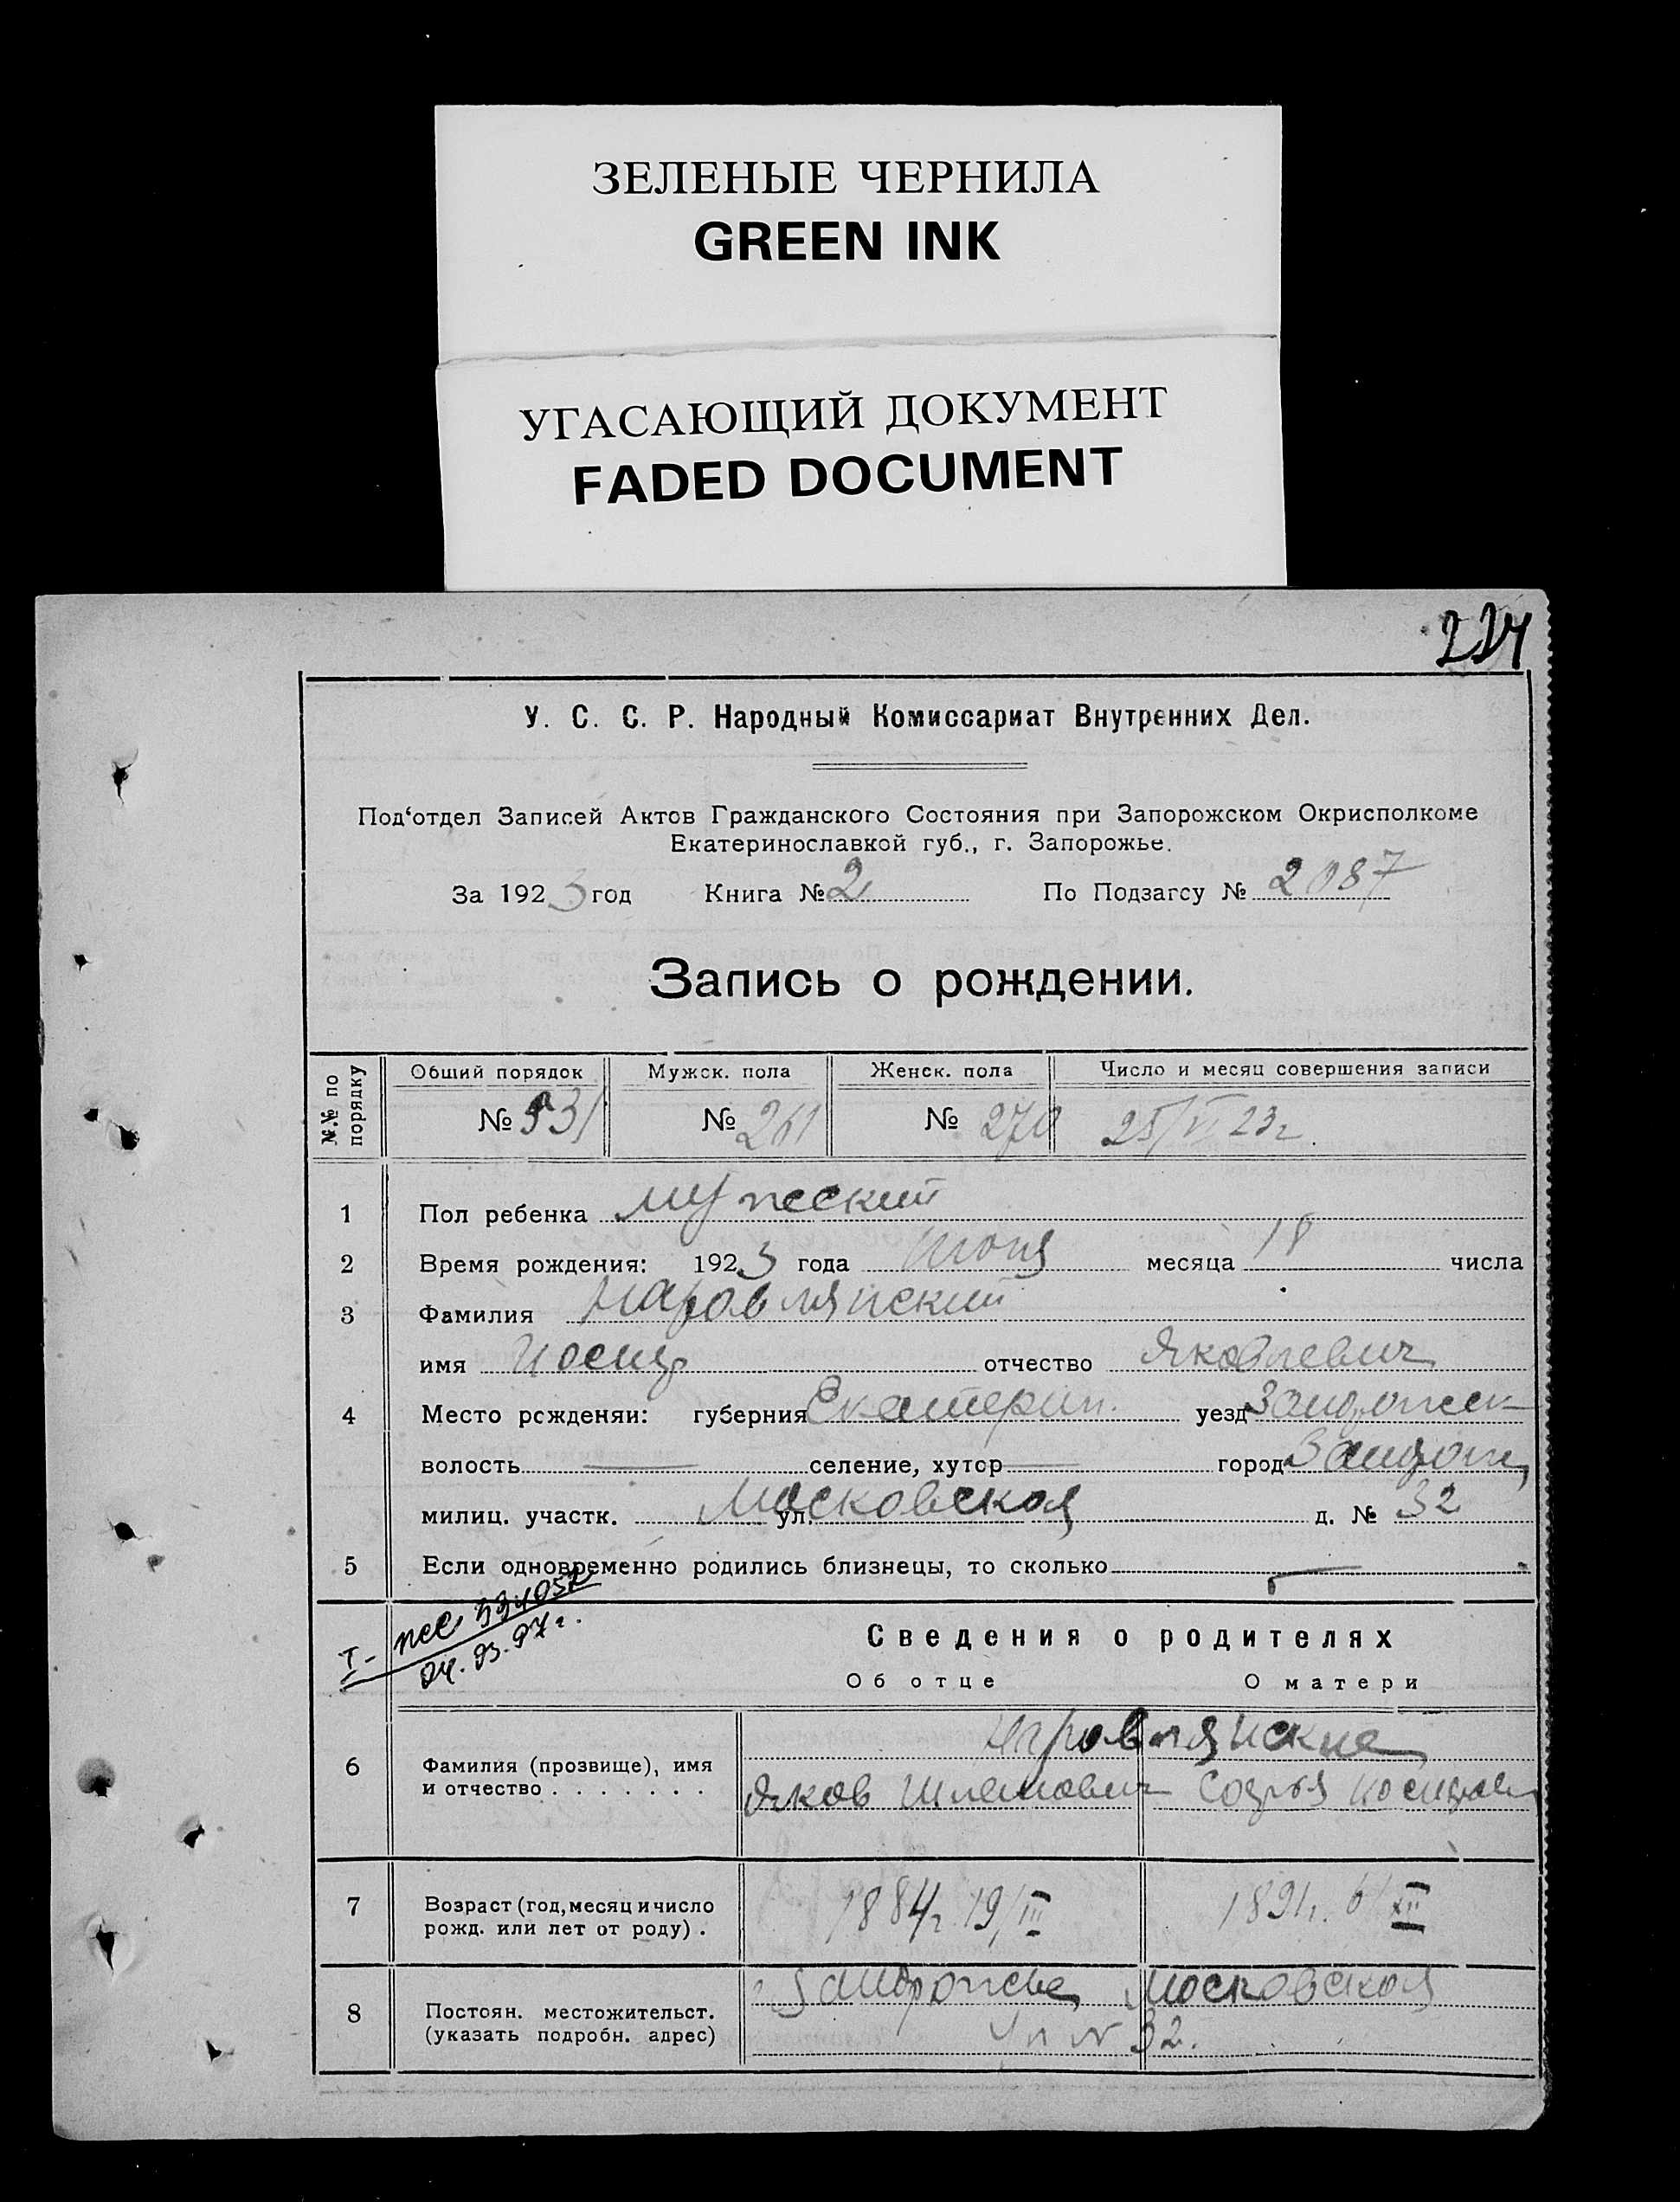 ЗЕЛЕНЫЕ ЧЕРНИЛА
GREEN INK
УГАСАЮЩИЙ ДОКУМЕНТ
FADED DOCUMENT
224
У. С. С. Р. Народный Комиссариат Внутренних Дел.
Под‘отдел Записей Актов Гражданского Состояния при Запорожском Окрисполкоме
Екатеринославкой губ., г. Запорожье.
За 1923 год Книга № 2 По Подзагсу № 2087
Запись о рождении.
№.№ по порядку Общий порядок Мужск. пола Женск. пола Число и месяц совершения записи
№ 531 № 261 № 270 25/VI 23г.
1 Пол ребенка мужеский
2 Время рождения: 1923 года июня месяца 18 числа
3 Фамилия Наровлянский
имя Иосиф отчество Яковлевич
4 Место рожденяи: губерния Екатерин. уезд Запорожск
волость — селение, хутор — город Запорож
милиц. участк. ул. Московская д. № 32
5 Если одновременно родились близнецы, то сколько —
Сведения о родителях
I- 04.03.97г.
Об отце О матери
Наровлянские
6 Фамилия (прозвище), имя
и отчество . . . . . . . Яков Шлемович Софья Иосифов
7 Возраст (год, месяц и число
рожд. или лет от роду) . 1884г. 19/III 1891г. 6/XII
8 Постоян. местожительст.
(указать подробн. адрес) г. Запорожье Московская
ул N 32.